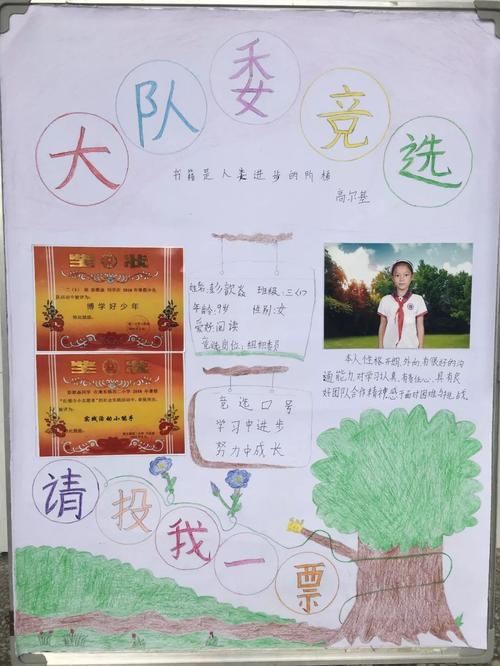 大队委竞选
书籍是人类进步的阶梯
高尔基
奖状
博学好少年
奖状
实践活动小能手
班级:三(1)
年龄:9岁 性别:女
爱好:阅读
竞选岗位:组织委员
竞选口号
学习中进步
努力中成长
本人性格开朗,外向,有很好的沟
通能力,对学习认真,有责任心,具有良
好团队合作精神,敢于面对困难与挑战
请投我一票